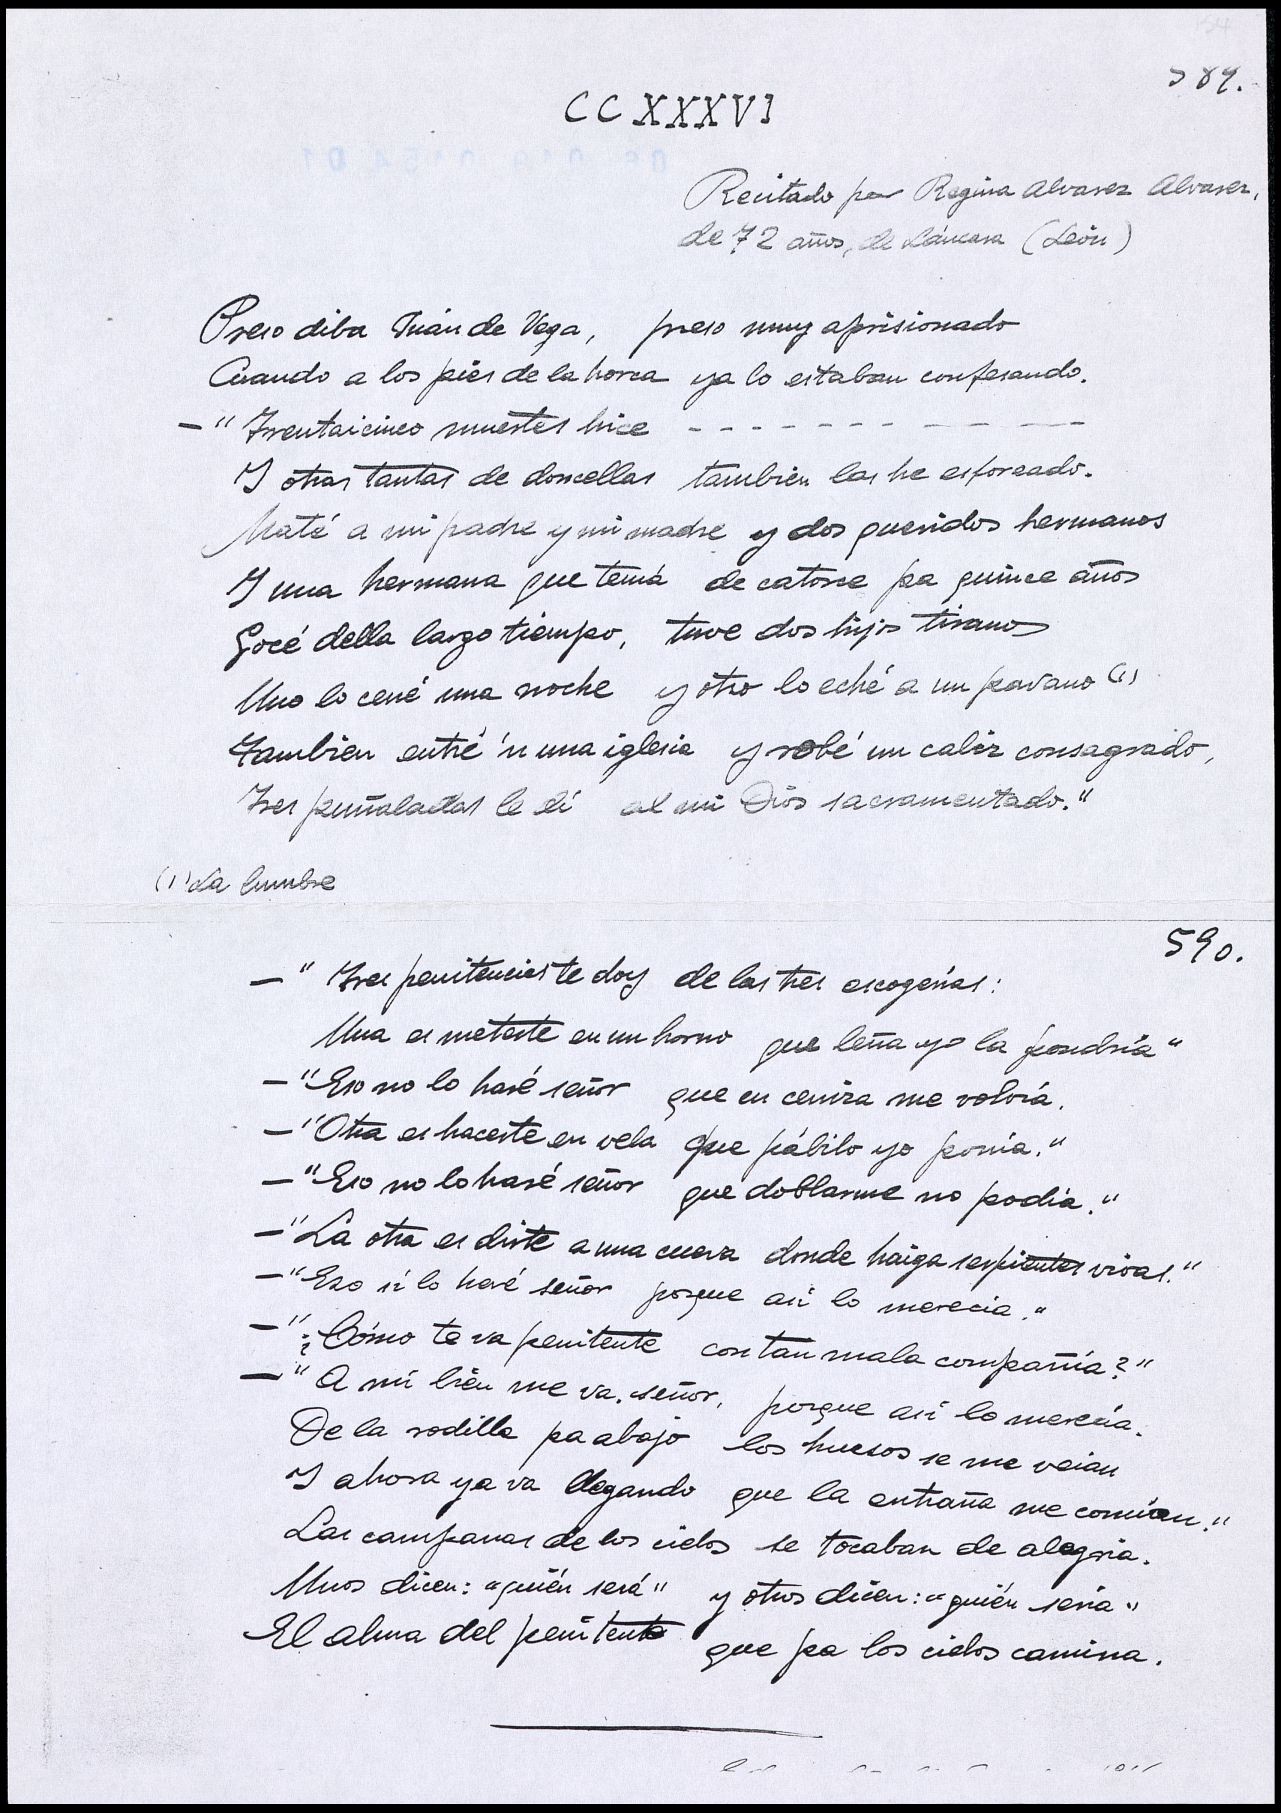 589.
CCXXXVI
Recitado por Regina Alvarez Alvarez,
de 72 años, de Láncara (León)
Preso diba Juán de Vega, preso muy aprisionado
Cuando a los pies de la horca ya lo estaban confesando.
— "Trentaicinco muertes hice - - - - - - - - - - - -
Y otras tantas de doncellas tambien las he esforeado.
Maté a mi padre y mi madre y dos queridos hermanos
Y una hermana que tenía de catorce pa quince años
Gocé della largo tiempo, tuve dos hijos tiranos
Uno lo cené una noche y otro lo eché a un pavano (1)
Tambien entré 'n una iglesia y robé un caliz consagrado,
Tres puñaladas le dí al mi Dios sacramentado."
(1) La lumbre
590.
— "Tres penitencias te doy de las tres escogerías:
Una es meterte en un horno que leña yo la pondría"
— "Eso no lo haré señor que en ceniza me volvía.
— "Otra es hacerte en vela que pábilo yo ponía."
— "Eso no lo haré señor que doblarme no podía."
— "La otra es dirte a una cueva donde haiga serpientes vivas."
— "Eso sí lo haré señor porque así lo merecía."
— "¿Cómo te va penitente con tan mala compañía?"
— "A mí bien me va, señor, porque así lo merecía.
De la rodilla pa abajo los huesos se me veían
Y ahora ya va llegando que la entraña me comían."
Las campanas de los cielos se tocaban de alegría.
Unos dicen: "quién será" y otros dicen: "quién sería"
El alma del penitente que pa los cielos camina.